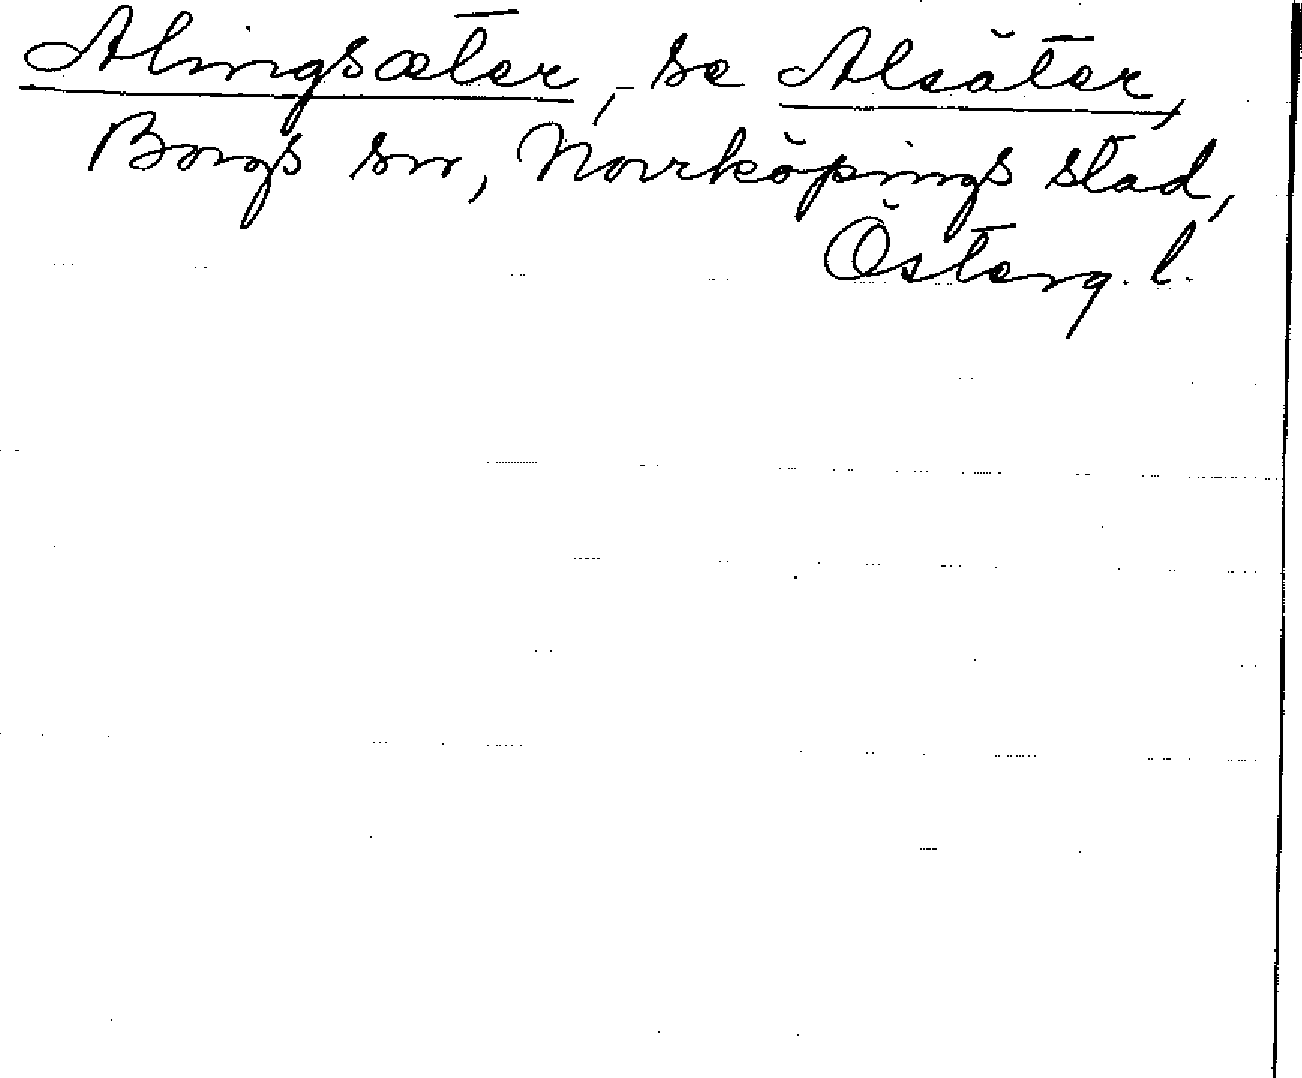 Alingsæter, se Alsäter,
Borgs sn, Norrköpings stad,
Österg. l.